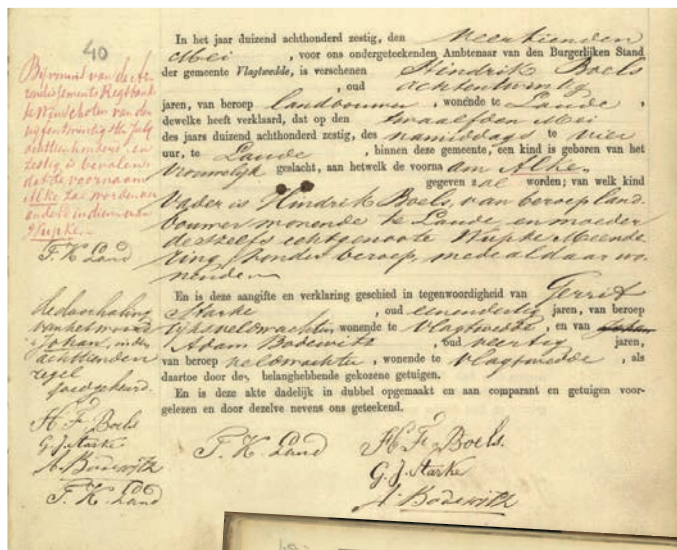 40
Bij vonnis van de Ar
rondissements Regtbank
te Winschoten van den
vijfentwintigste July
achttienhonderd en
zestig is bevolen
dat de voornaam
Alke zal worden ver
anderd in dien van
Wupke.
F. K. Land
de doorhaling
van het woord
Johan, in den
achttienden
regel
goedgekeurd.
H. F. Boels
G. J. Starke
A. Bodewith
F. K. Land
In het jaar duizend achthonderd zestig, den veertienden
Mei , voor ons ondergeteekenden Ambtenaar van den Burgerlijken Stand
der gemeente Vlagtwedde, is verschenen Hindrik Boels
, oud achtentwintig
jaren, van beroep landbouwer , wonende te Laude ,
dewelke heeft verklaard, dat op den twaalfden Mei
des jaars duizend achthonderd zestig, des namiddags te vier
uur, te Laude , binnen deze gemeente, een kind is geboren van het
vrouwelijk geslacht, aan hetwelk de voorna am Alke
gegeven zal worden; van welk kind
vader is Hindrik Boels, van beroep land-
bouwer wonende te Laude, en moeder
deszelfs echtgenoote Wupke Meende-
ring zonder beroep, mede aldaar wo-
nende
En is deze aangifte en verklaring geschied in tegenwoordigheid van Gerrit
Starke , oud eenendertig jaren, van beroep
rijksveldwachter, wonende te Vlagtwedde , en van Johan
Adam Bodewith , oud veertig jaren,
van beroep veldwachter , wonende te Vlagtwedde , als
daartoe door den belanghebbende gekozene getuigen.
En is deze akte dadelijk in dubbel opgemaakt en aan comparant en getuigen voor-
gelezen en door dezelve nevens ons geteekend.
F. K. Land
H. F. Boels.
G. J. Starke
A. Bodewith